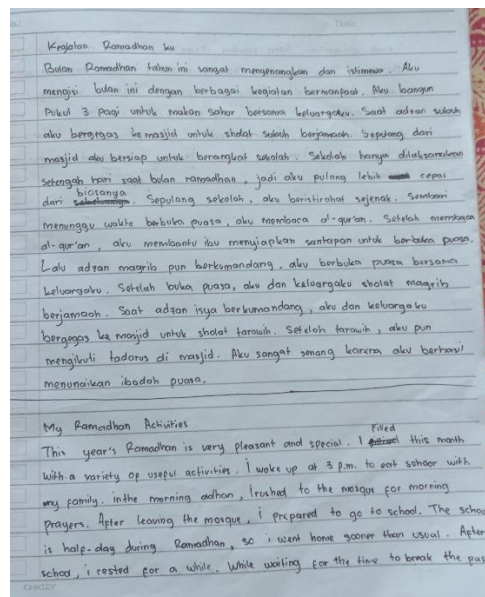 Date
Kegiatan Ramadhan ku
Bulan Ramadhan tahun ini sangat menyenangkan dan istimewa. Aku
mengisi bulan ini dengan berbagai kegiatan bermanfaat. Aku bangun
Pukul 3 pagi untuk makan sahur bersama keluargaku. Saat adzan subuh
aku bergegas ke masjid untuk sholat subuh berjamaah. Sepulang dari
masjid aku bersiap untuk berangkat sekolah. Sekolah hanya dilaksanakan
setengah hari saat bulan ramadhan, jadi aku pulang lebih cepat
dari biasanya. Sepulang sekolah, aku beristirahat sejenak. Sembari
menunggu waktu berbuka puasa, aku membaca al-qur'an. Setelah membaca
al-qur'an, aku membantu ibu menyiapkan santapan untuk berbuka puasa.
Lalu adzan magrib pun berkumandang, aku berbuka puasa bersama
keluargaku. Setelah buka puasa, aku dan keluargaku sholat magrib
berjamaah. Saat adzan isya berkumandang, aku dan keluargaku
bergegas ke masjid untuk sholat tarawih. Setelah tarawih, aku pun
mengikuti tadarus di masjid. Aku sangat senang karena aku berhasil
menunaikan ibadah puasa.
My Ramadhan Activities
This year's Ramadhan is very pleasant and special. I filled this month
with a variety of useful activities. I woke up at 3 p.m. to eat sahoor with
my family. In the morning adhan, I rushed to the mosque for morning
prayers. After leaving the mosque, i prepared to go to school. The schoo
is half-day during Ramadhan, so i went home sooner than usual. After
school, i rested for a while. While waiting for the time to break the fas